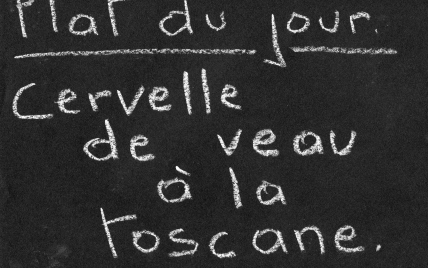 Plat du jour.
Cervelle
de veau
à la
toscane.